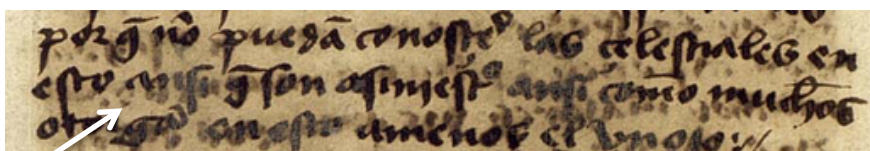 por q̃ no puedã conosçer las çelestiales en
esto ansi q̃ son asiniestro ansi como muchos
en esto amenos el vn ojo